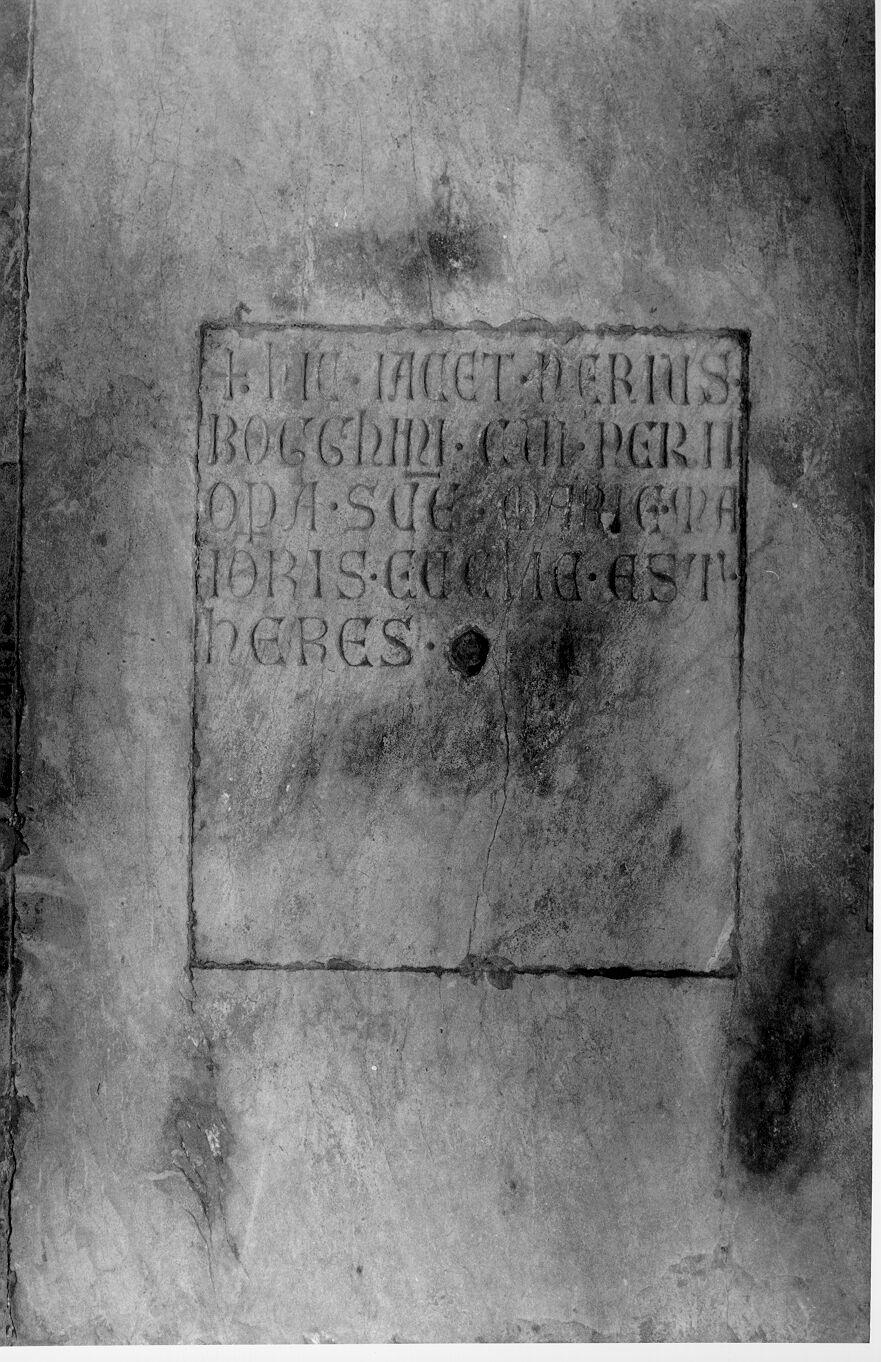 + · HIC · IACET · NERIUS ·
BOCCHINI · CUI · NERII
OPA · SCE · MARIE · MA
IORIS · ECCLIE · EST ·
HERES ·